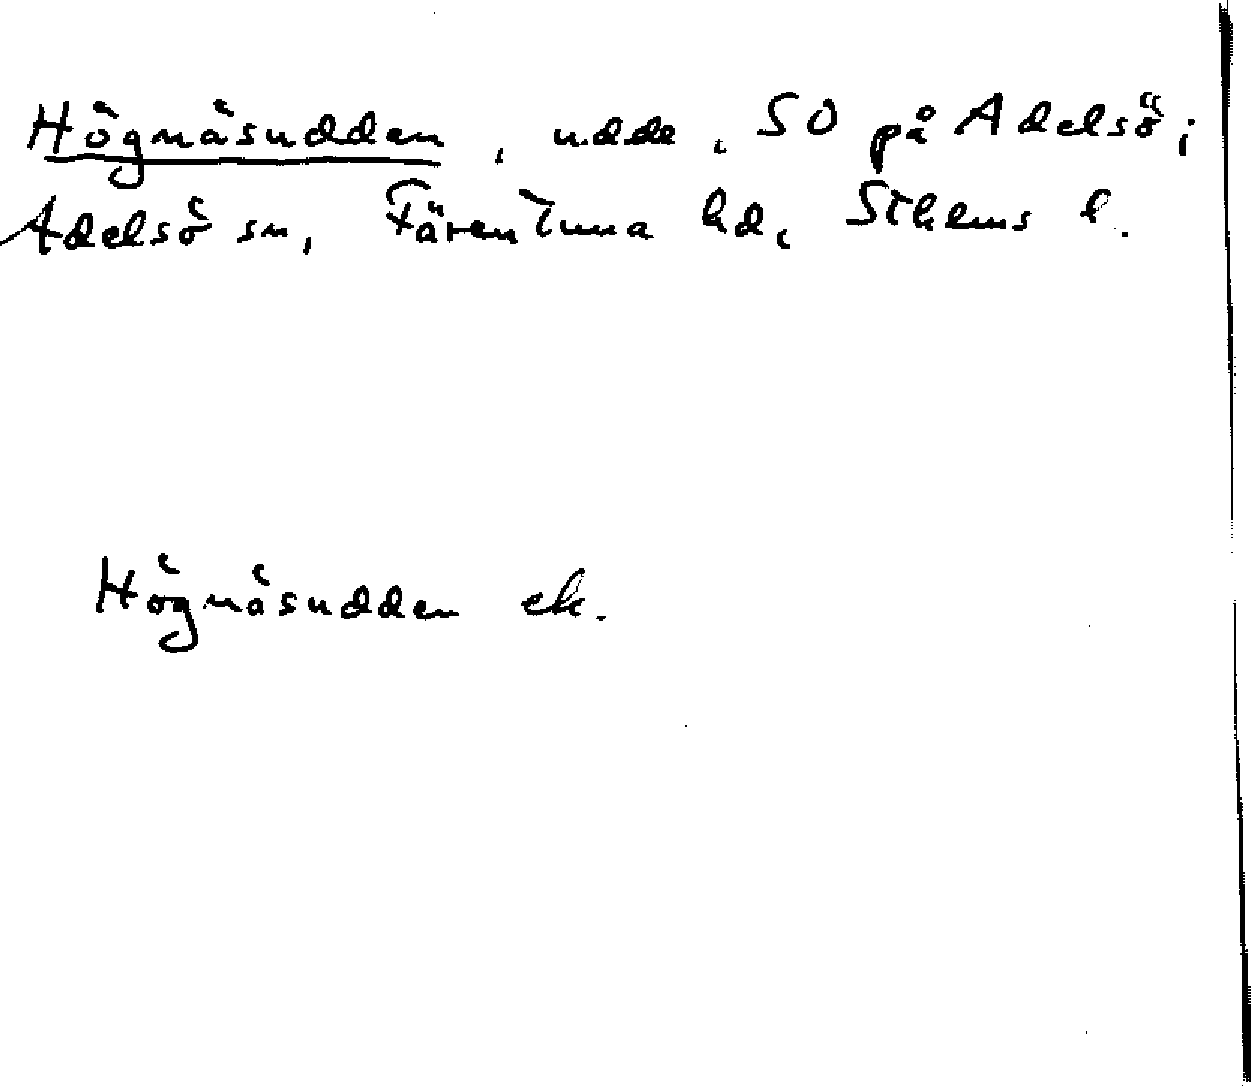 Högnäsudden, udde, SO på Adelsö;
Adelsö sn, Färentuna hd, Sthlms l.
Högnäsudden ek.